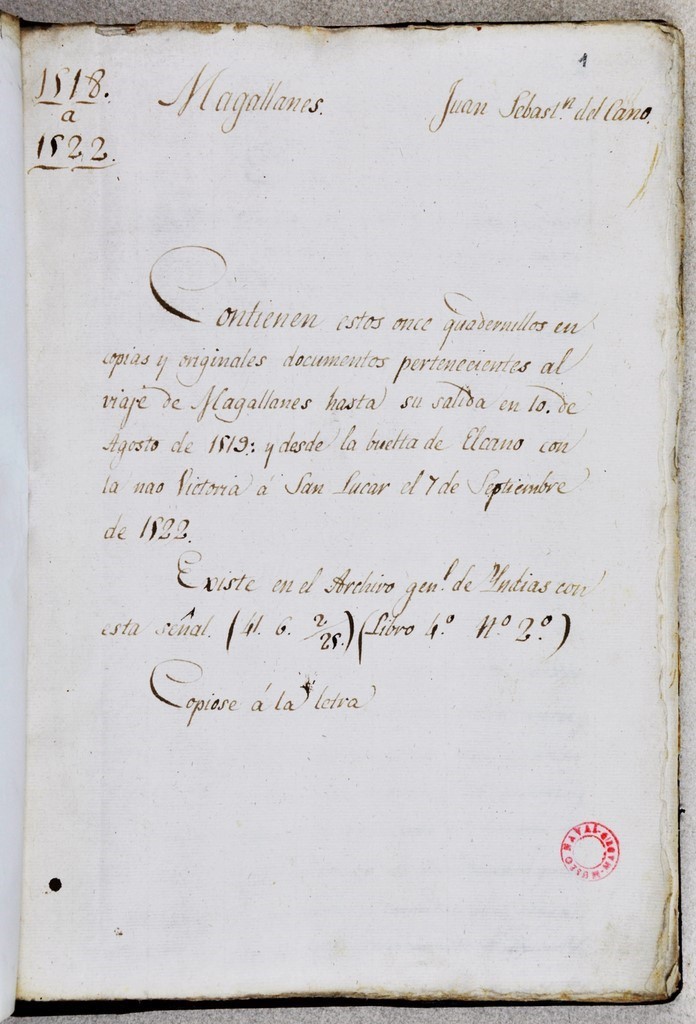 1
1518.
a
1522.
Magallanes.
Juan Sebast.n del Cano.
Contienen estos once quadernillos en
copias y originales documentos pertenecientes al
viaje de Magallanes hasta su salida en 10. de
Agosto de 1519: y desde la buelta de Elcano con
la nao Victoria á San Lucar el 7 de Septiembre
de 1522.
Existe en el Archivo gen.l de Yndias con
esta señal. (41. 6. 2/25.) (Libro 4.º N.º 2.º)
Copiose á la letra
MUSEO NAVAL